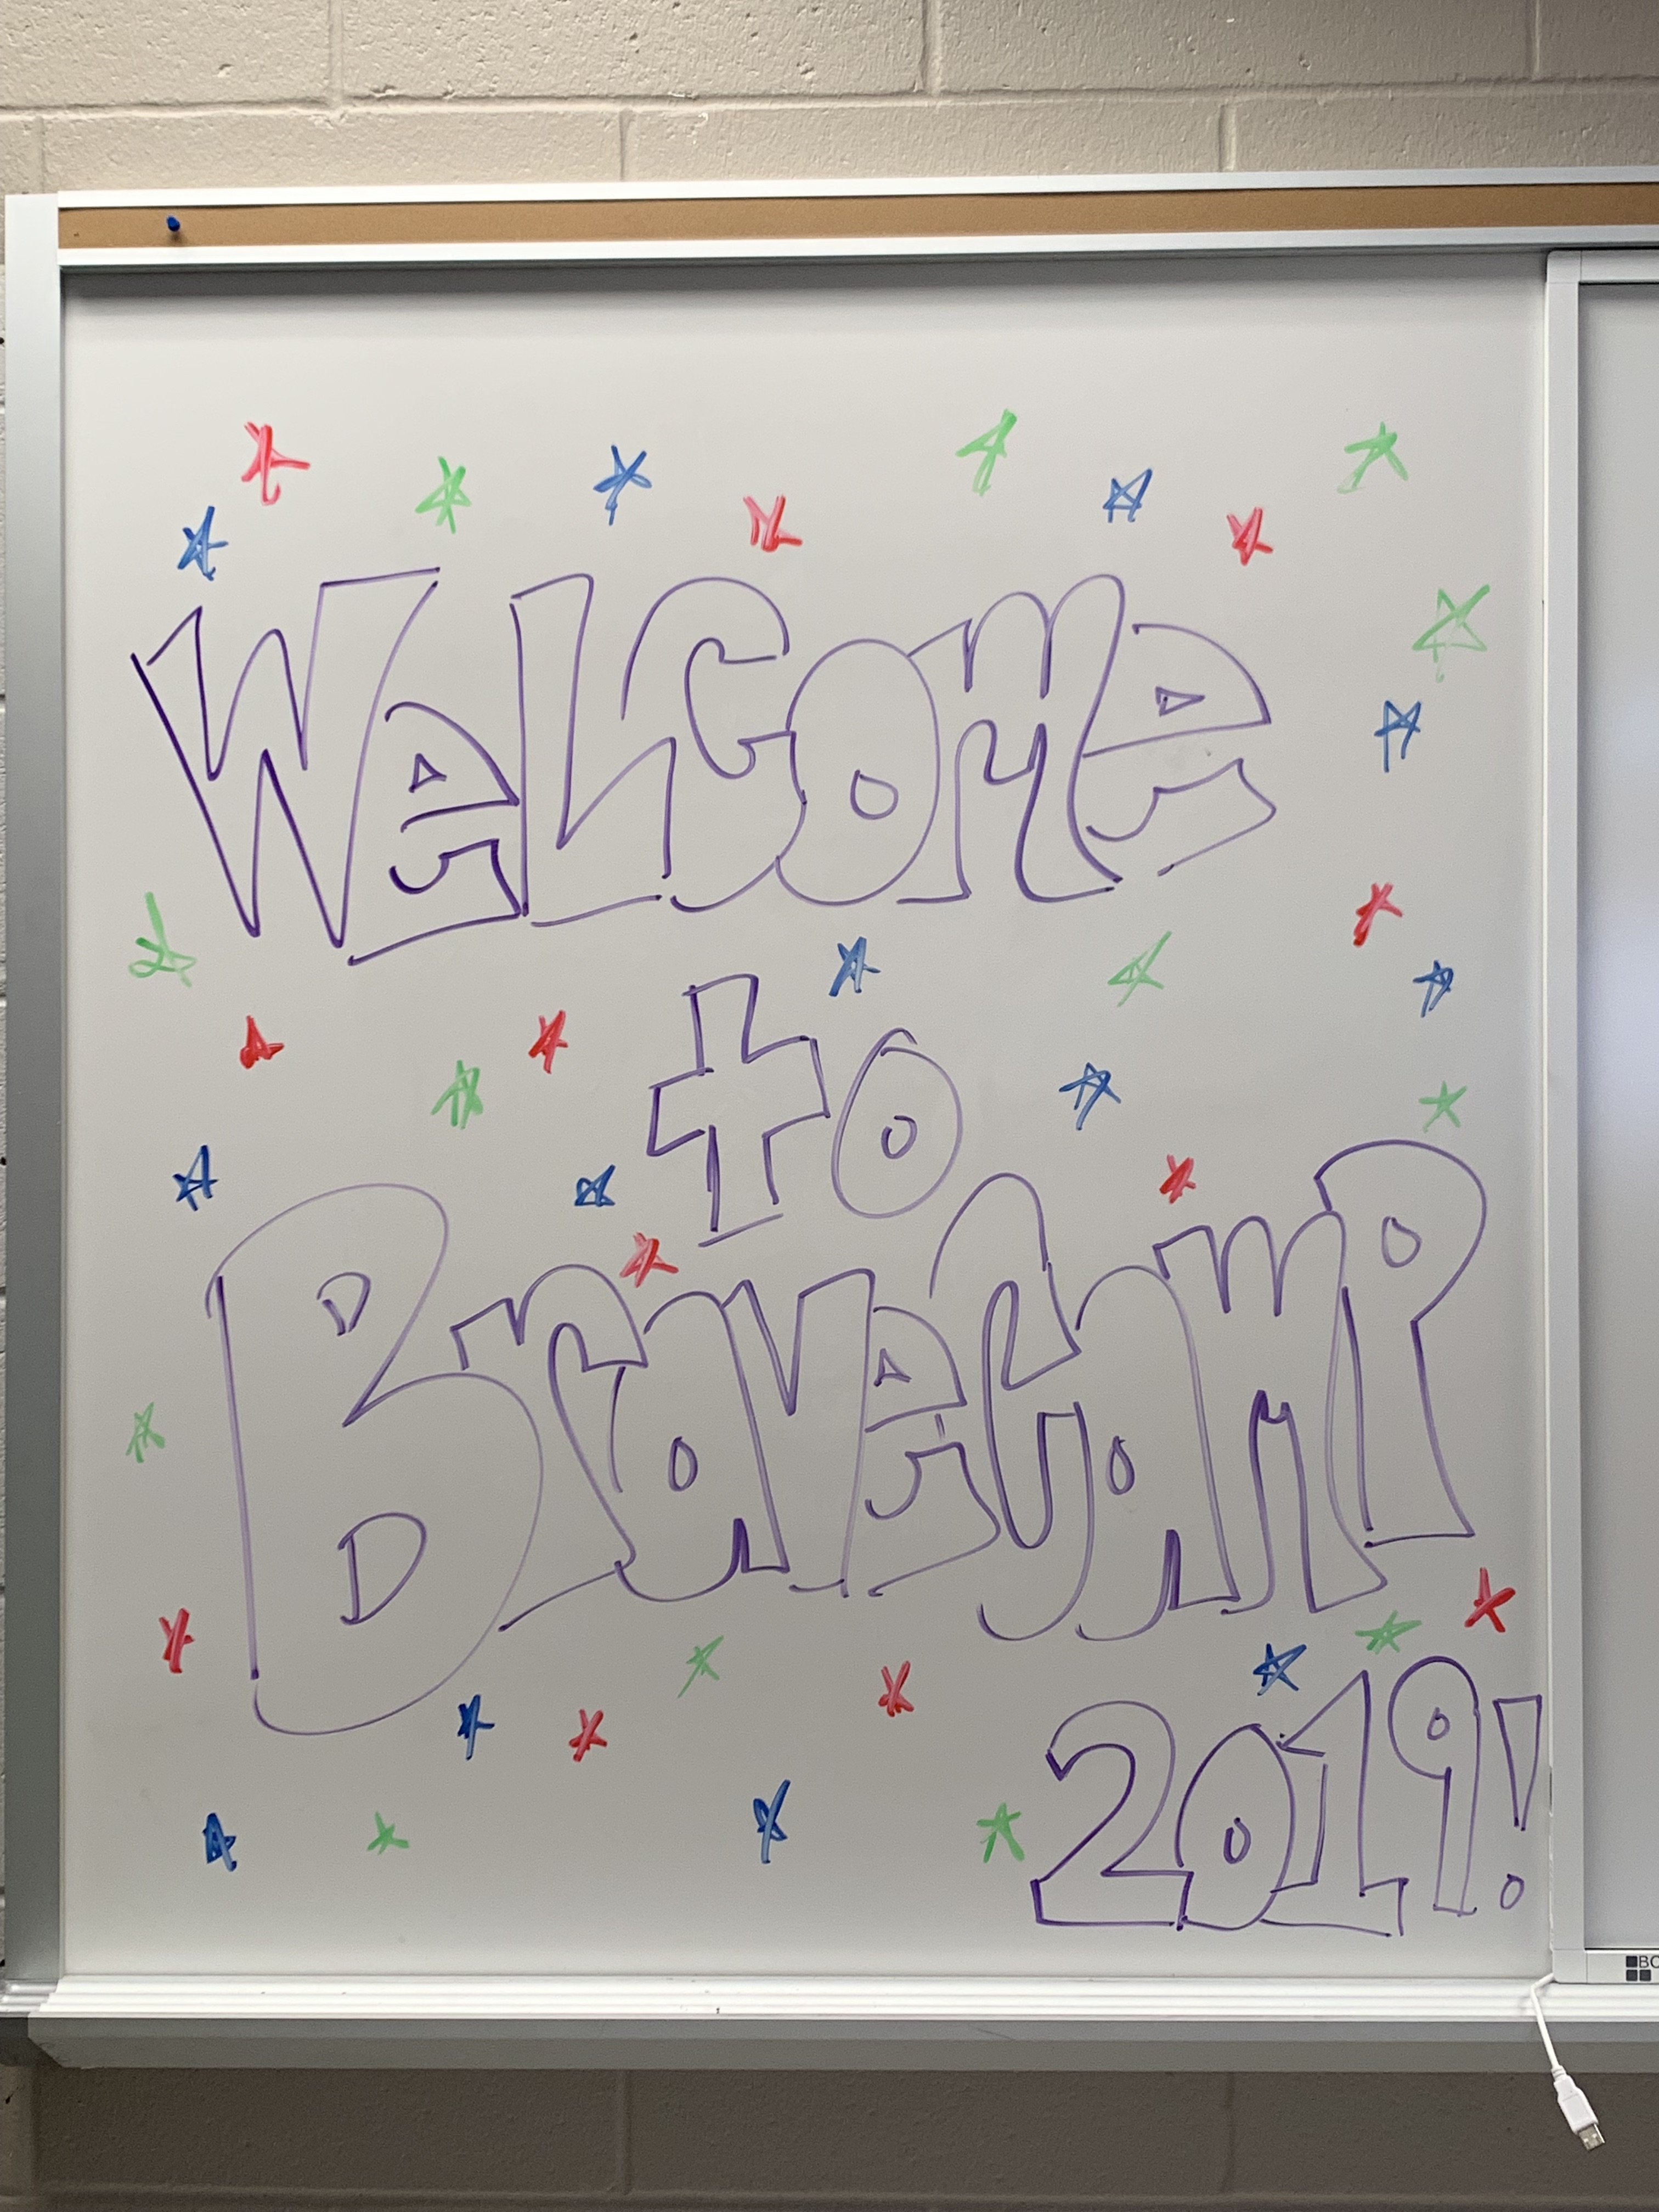 Welcome
to
BraveCamp
2019!
BO